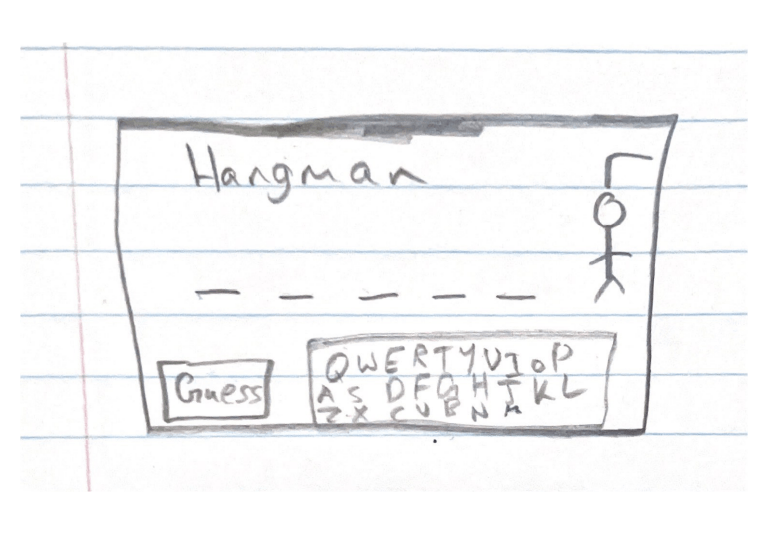 Hangman
_ _ _ _ _
Guess
QWERTYUIOP
AS DFGHJKL
ZXCVBNM